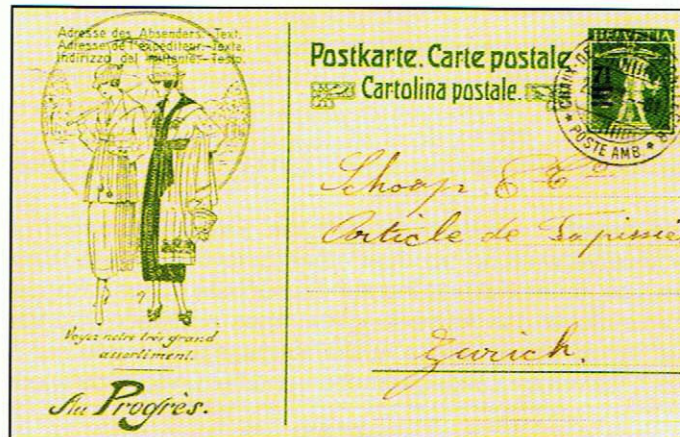 Adresse des Absenders.-Text.
Adresse de l'expéditeur.-Texte.
Indirizzo del mittente.-Testo.
Voyez notre très grand
assortiment.
Au Progrès.
Postkarte. Carte postale
Cartolina postale.
HELVETIA
POSTE AMB
Schoop & Co.
Article de Tapissié
Zurich.